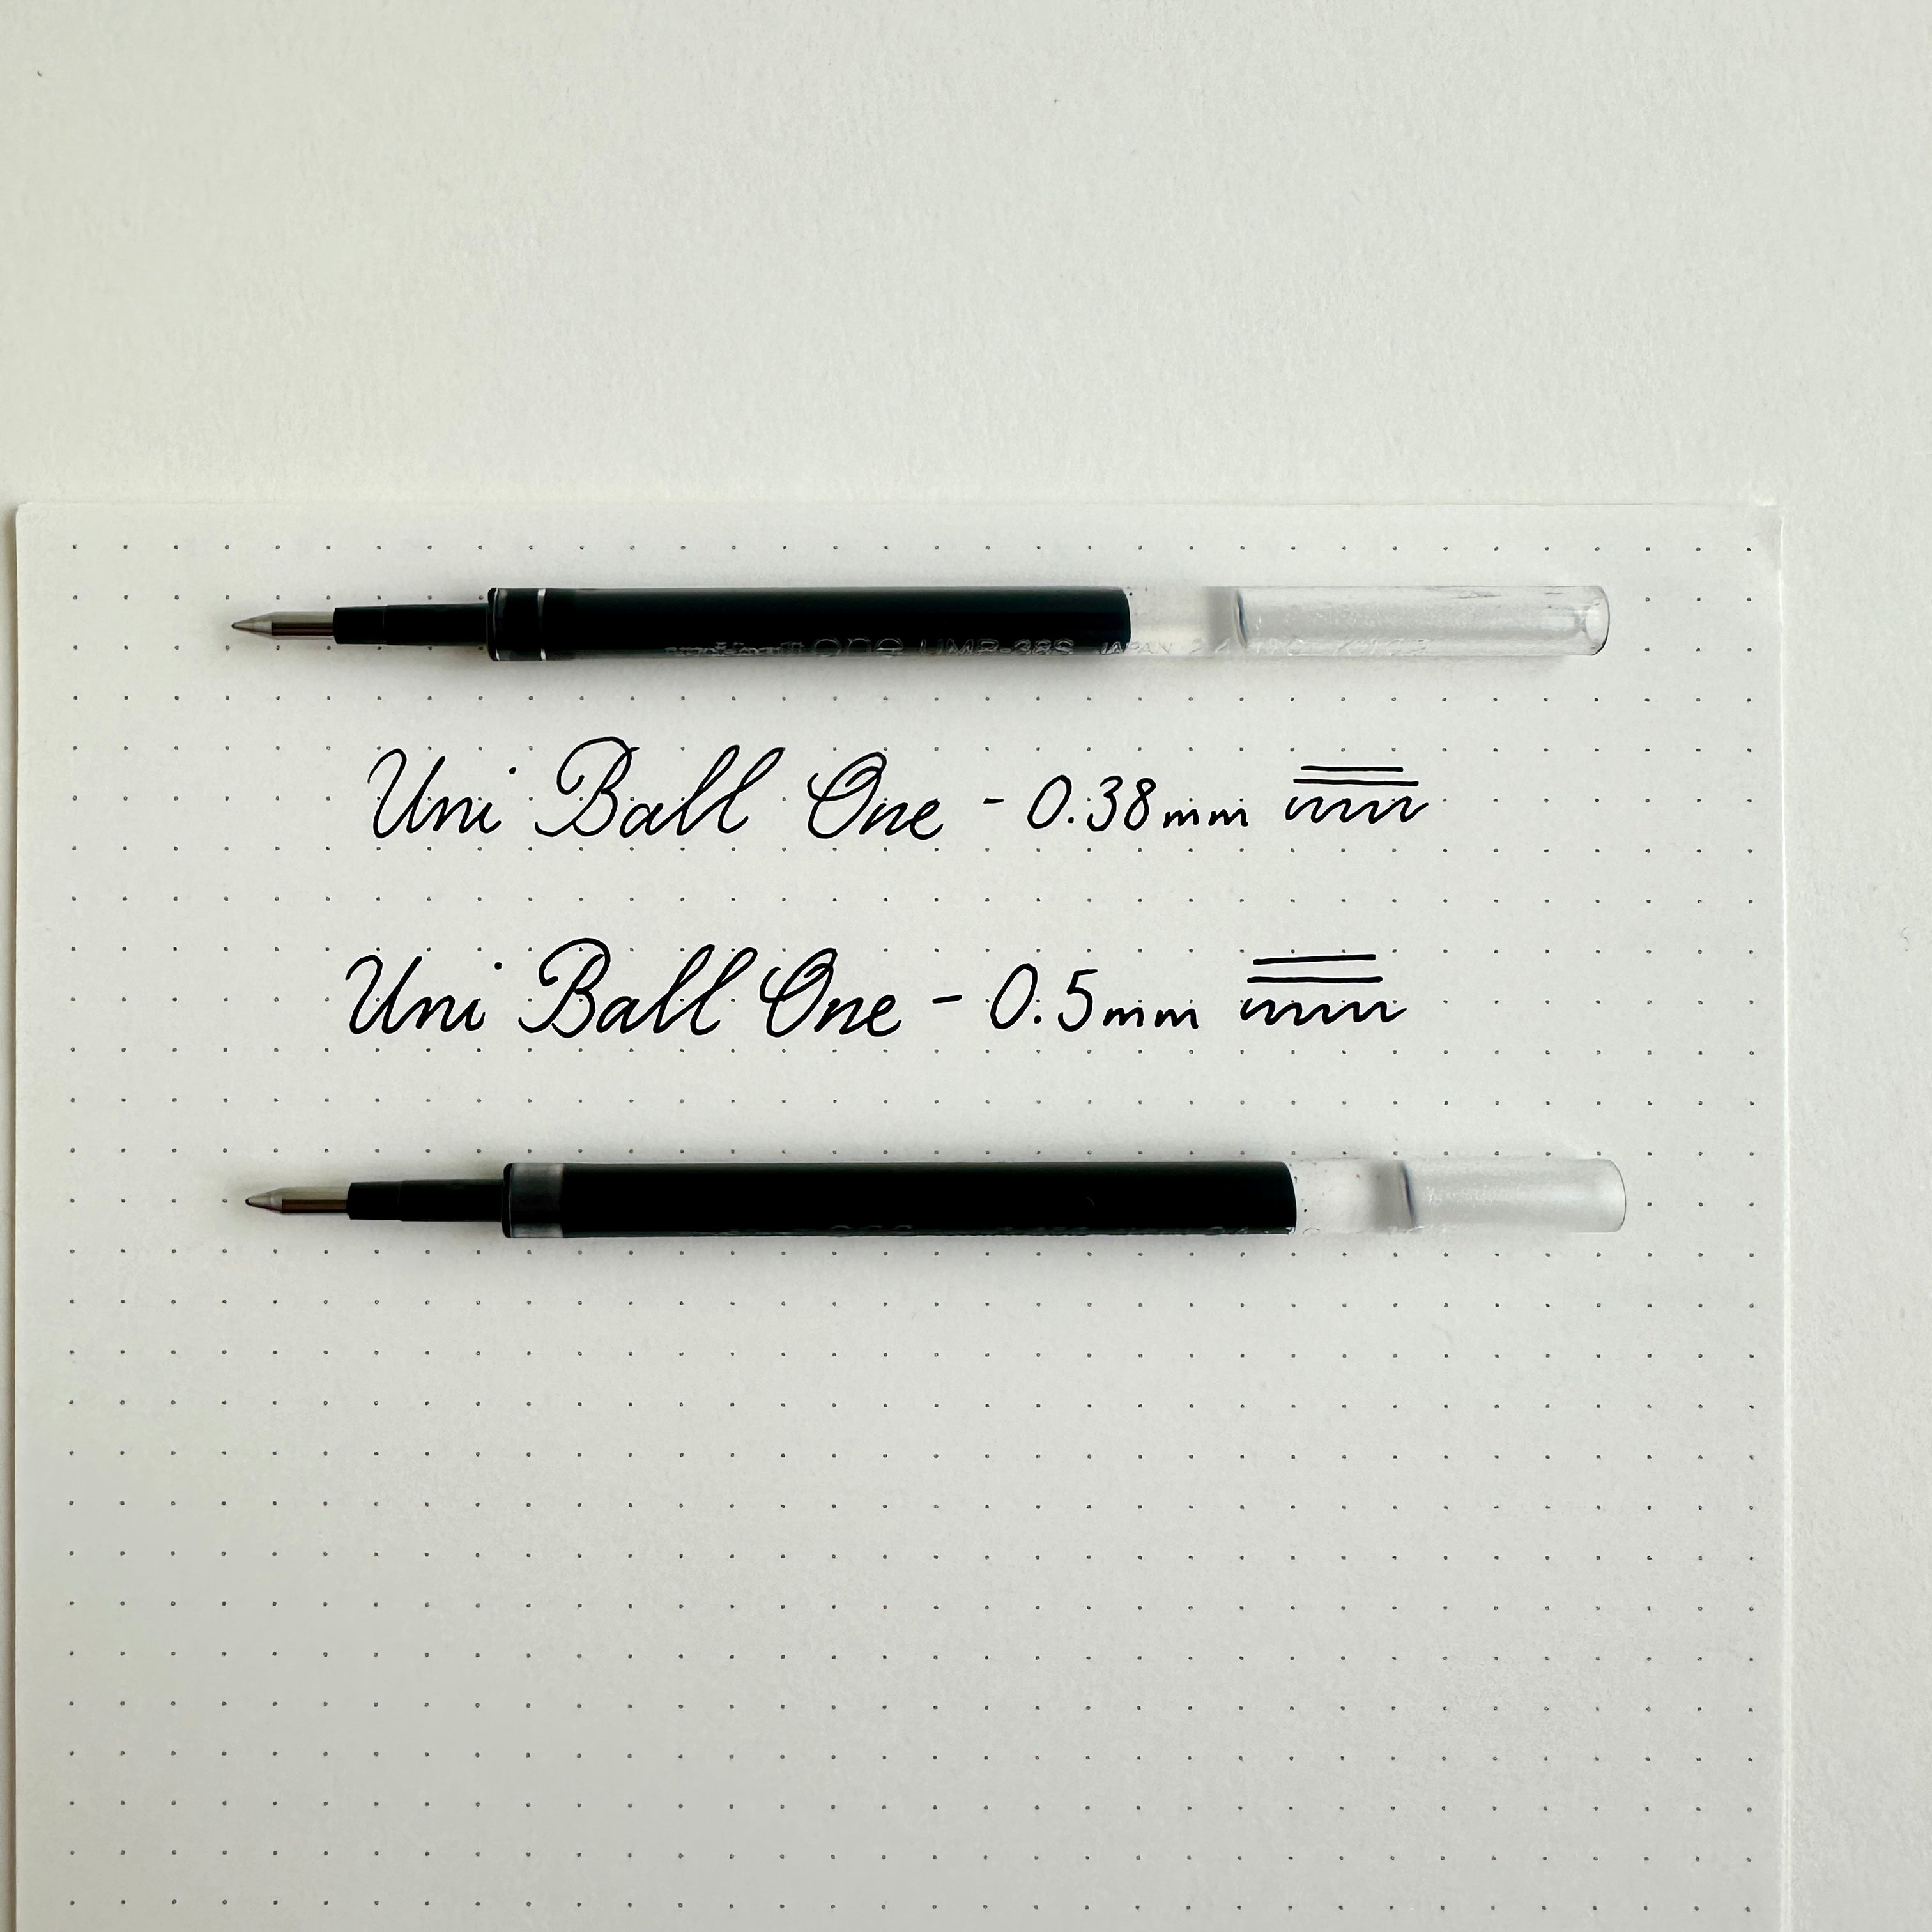 one UMR-38S JAPAN
Uni Ball One - 0.38mm
Uni Ball One - 0.5mm